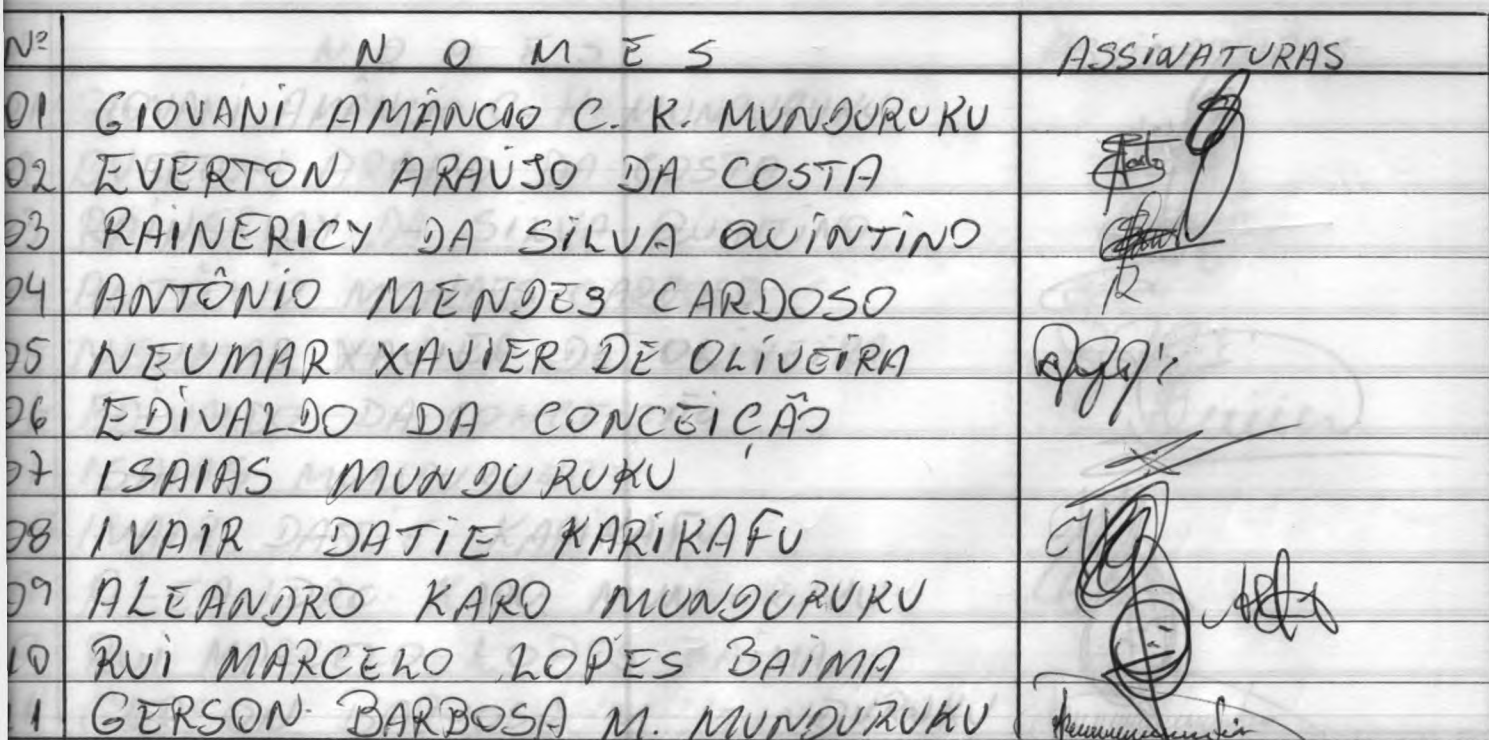 Nº N O M E S ASSINATURAS
01 GIOVANI AMÂNCIO C. K. MUNDURUKU
02 EVERTON ARAÚJO DA COSTA
03 RAINERICY DA SILVA QUINTINO
04 ANTÔNIO MENDES CARDOSO
05 NEUMAR XAVIER DE OLIVEIRA
06 EDIVALDO DA CONCEIÇÃO
07 ISAIAS MUNDURUKU
08 IVAIR DATIE KARIKAFU
09 ALEANDRO KARO MUNDURUKU
10 RUI MARCELO LOPES BAIMA
11 GERSON BARBOSA M. MUNDURUKU